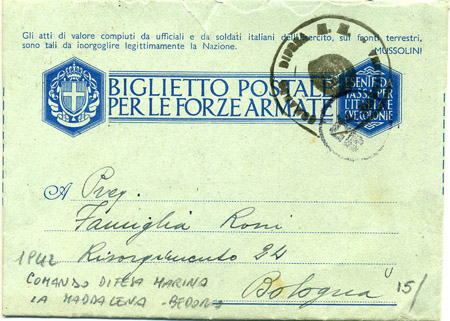 Gli atti di valore compiuti da ufficiali e da soldati italiani dell'esercito, sui fronti terrestri,
sono tali da inorgoglire legittimamente la Nazione.
MUSSOLINI
BIGLIETTO POSTALE
PER LE FORZE ARMATE
ESENTE DA
TASSA PER
L'ITALIA
E SUE COLONIE
A Preg.
Famiglia Roni
Risorgimento 24
Bologna
1942
COMANDO DIFESA MARINA
LA MADDALENA -
15/